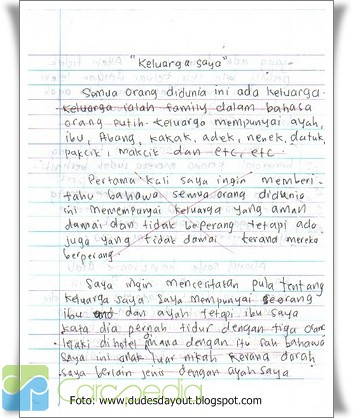 "Keluarga saya"
Semua orang didunia ini ada keluarga.
Keluarga ialah family dalam bahasa
orang putih. Keluarga mempunyai ayah,
ibu, Abang, kakak, adek, nenek, datuk,
pakcik, makcik dan etc, etc
Pertama kali saya ingin memberi-
tahu bahawa semua orang didunia
ini memempunyai keluarga yang aman
damai dan tidak beperang tetapi ada
juga yang tidak damai kerana mereka
berperang.
Saya ingin menceritakan pula tentang
keluarga saya. Saya mempunyai seorang
ibu dan ayah tetapi ibu saya
kata dia pernah tidur dengan tiga orang
lelaki di hotel mana dengan itu sah bahawa
saya ini anak luar nikah kerana darah
saya berlain jenis dengan ayah saya
Carcpedia
Foto: www.dudesdayout.blogspot.com